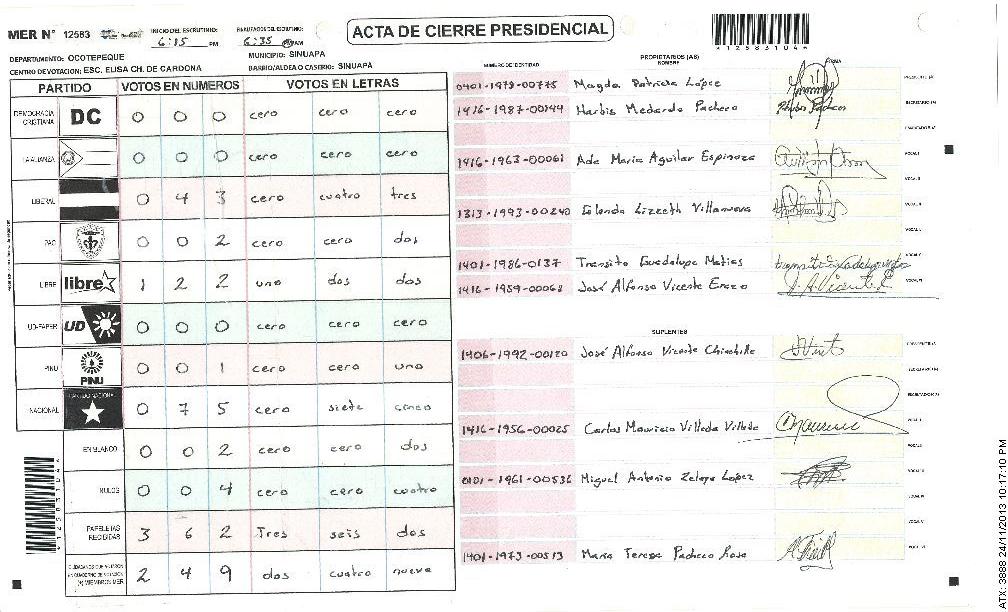 MER N° 12583
INICIO DEL ESCRUTINIO: 6:15 PM
FINALIZADO DEL ESCRUTINIO: 6:35 AM
ACTA DE CIERRE PRESIDENCIAL
DEPARTAMENTO: OCOTEPEQUE
MUNICIPIO: SINUAPA
CENTRO DE VOTACION: ESC. ELISA CH. DE CARDONA
BARRIO/ALDEA O CASERIO: SINUAPA
PARTIDO VOTOS EN NUMEROS VOTOS EN LETRAS
DEMOCRACIA CRISTIANA DC 0 0 0 cero cero cero
LA ALIANZA 0 0 0 cero cero cero
LIBERAL 0 4 3 cero cuatro tres
PAC 0 0 2 cero cero dos
LIBRE libre 1 2 2 uno dos dos
UD-FAPER UD 0 0 0 cero cero cero
PINU PINU 0 0 1 cero cero uno
NACIONAL PARTIDO NACIONAL 0 7 5 cero siete cinco
EN BLANCO 0 0 2 cero cero dos
NULOS 0 0 4 cero cero cuatro
PAPELETAS RECIBIDAS 3 6 2 Tres seis dos
CIUDADANOS QUE VOTARON EN CUADERNO DE VOTACION (+) MIEMBROS MER 2 4 9 dos cuatro nueve
NUMERO DE IDENTIDAD
PROPIETARIOS (AS)
NOMBRE
FIRMA
0401-1979-00775 Magda Patricia López
1416-1987-00144 Harbis Medardo Pacheco
1416-1963-00061 Ada Maria Aguilar Espinoza
1313-1993-00240 Lizzeth Villanueva
1401-1986-0137 Transito Guadalupe Matias
1416-1959-00068 José Alfonso Vicente Erazo
SUPLENTES
1406-1992-00120 José Alfonso Vicente Chinchilla
1416-1956-00025 Carlos Mauricio Villeda Villeda
0101-1961-00536 Miguel Antonio Zelaya López
1401-1973-00513 Maria Teresa Pacheco Rosa
ATX: 3888 24/11/2013 10:17:10 PM